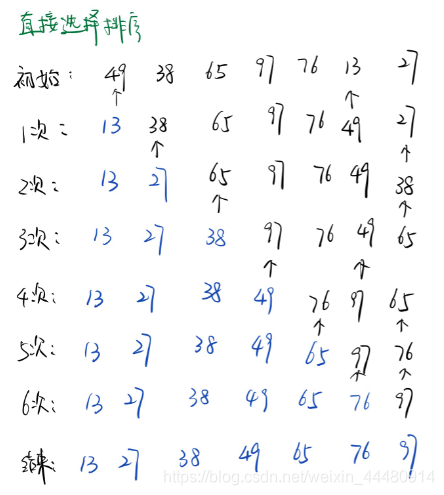 直接选择排序
初始: 49 38 65 97 76 13 27
1次: 13 38 65 97 76 49 27
2次: 13 27 65 97 76 49 38
3次: 13 27 38 97 76 49 65
4次: 13 27 38 49 76 97 65
5次: 13 27 38 49 65 97 76
6次: 13 27 38 49 65 76 97
结果: 13 27 38 49 65 76 97
https://blog.csdn.net/weixin_44480914